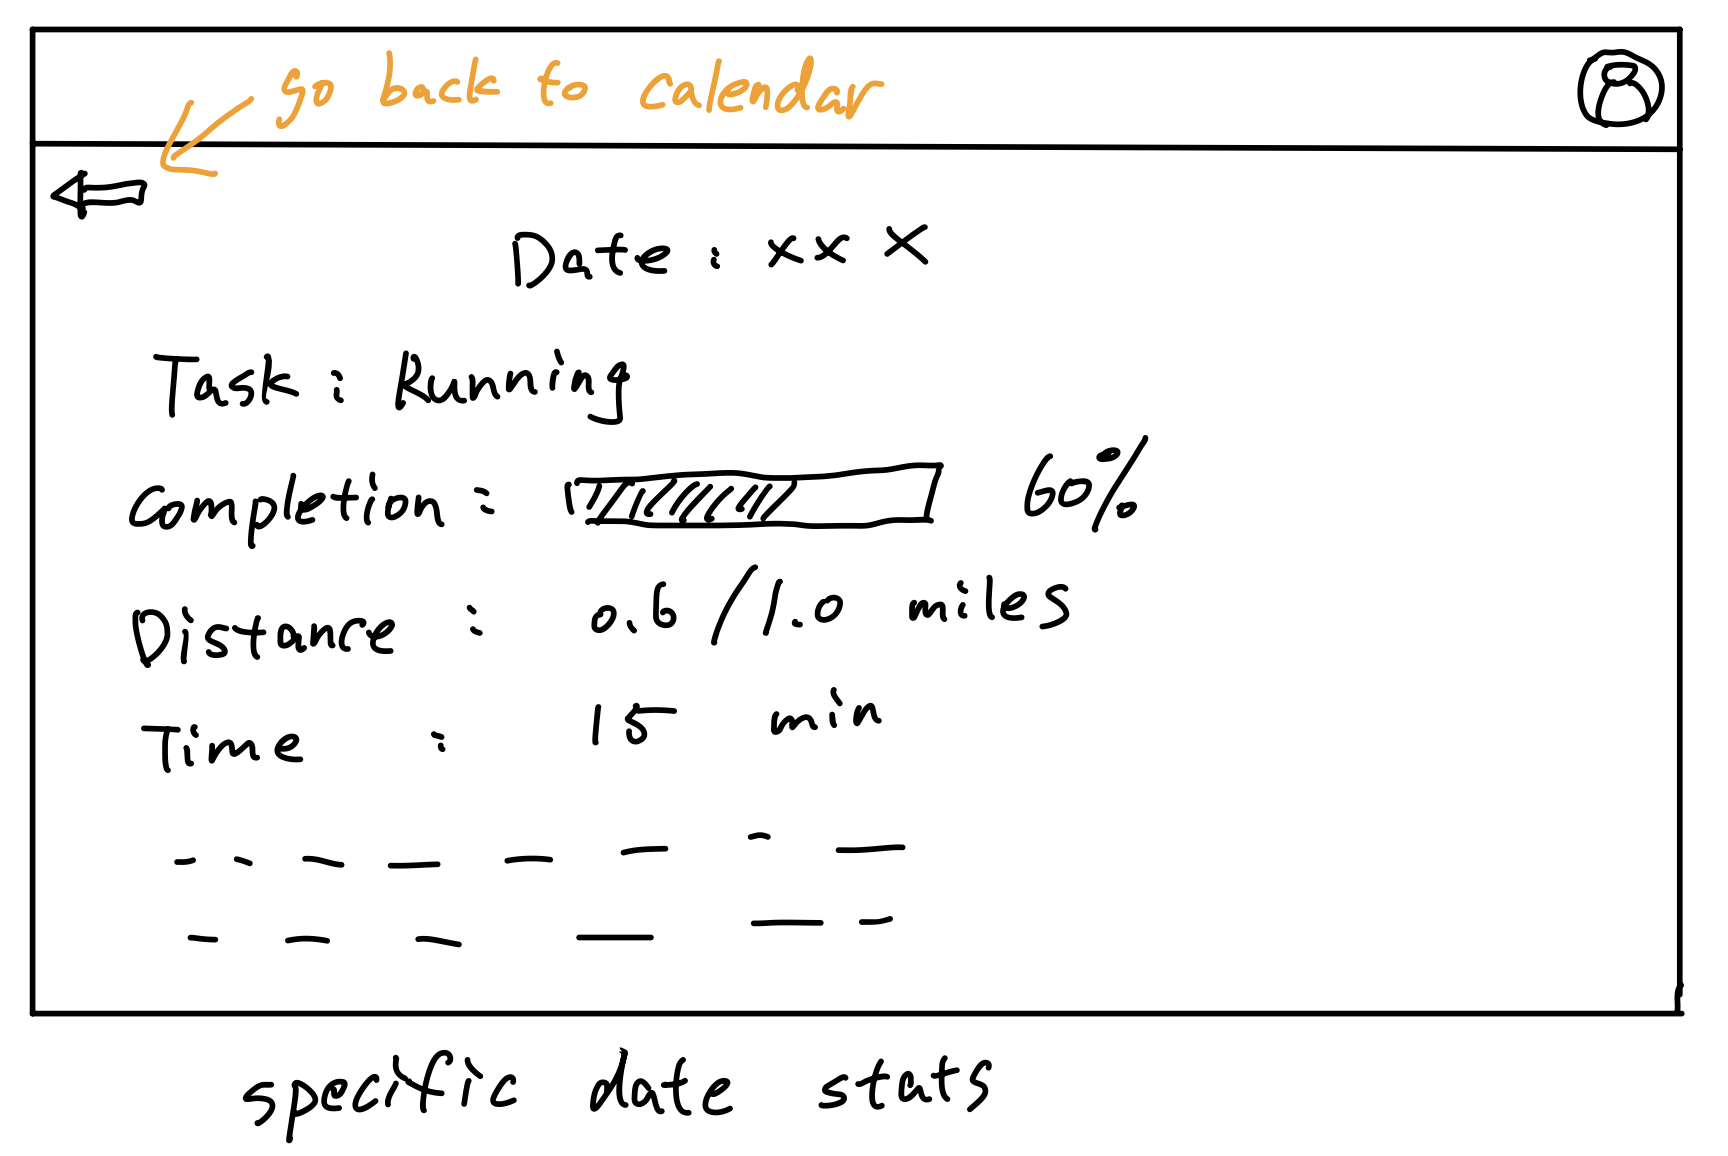 go back to calendar
Date : xx X
Task : Running
Completion : 60%
Distance : 0.6 / 1.0 miles
Time : 15 min
specific date stats